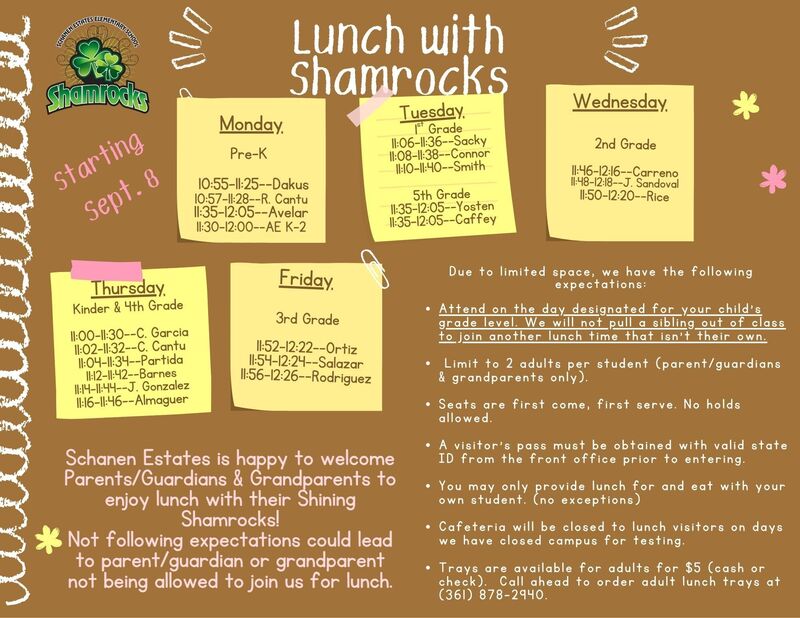 SCHANEN ESTATES ELEMENTARY SCHOOL
Shamrocks
Lunch with
Shamrocks
Starting
Sept. 8
Monday
Pre-K
10:55-11:25--Dakus
10:57-11:28--R. Cantu
11:35-12:05--Avelar
11:30-12:00--AE K-2
Tuesday
1st Grade
11:06-11:36--Sacky
11:08-11:38--Connor
11:10-11:40--Smith
5th Grade
11:35-12:05--Yosten
11:35-12:05--Caffey
Wednesday
2nd Grade
11:46-12:16--Carreno
11:48-12:18--J. Sandoval
11:50-12:20--Rice
Thursday
Kinder & 4th Grade
11:00-11:30--C. Garcia
11:02-11:32--C. Cantu
11:04-11:34--Partida
11:12-11:42--Barnes
11:14-11:44--J. Gonzalez
11:16-11:46--Almaguer
Friday
3rd Grade
11:52-12:22--Ortiz
11:54-12:24--Salazar
11:56-12:26--Rodriguez
Schanen Estates is happy to welcome
Parents/Guardians & Grandparents to
enjoy lunch with their Shining
Shamrocks!
Not following expectations could lead
to parent/guardian or grandparent
not being allowed to join us for lunch.
Due to limited space, we have the following
expectations:
• Attend on the day designated for your child's
grade level. We will not pull a sibling out of class
to join another lunch time that isn't their own.
• Limit to 2 adults per student (parent/guardians
& grandparents only).
• Seats are first come, first serve. No holds
allowed.
• A visitor's pass must be obtained with valid state
ID from the front office prior to entering.
• You may only provide lunch for and eat with your
own student. (no exceptions)
• Cafeteria will be closed to lunch visitors on days
we have closed campus for testing.
• Trays are available for adults for $5 (cash or
check). Call ahead to order adult lunch trays at
(361) 878-2940.